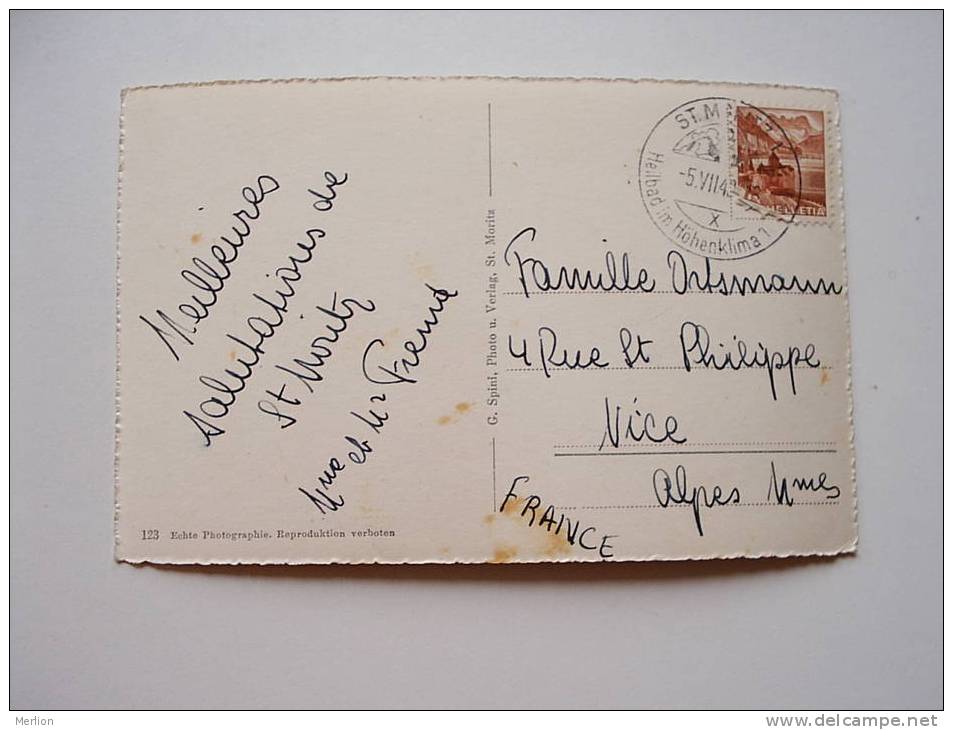 Meilleures
salutations de
St Moritz
Mme et Mr
123 Echte Photographie. Reproduktion verboten
G. Spini, Photo u. Verlag, St. Moritz
ST. M
-5.VII.4
X
Heilbad im Höhenklima 1
HELVETIA
Famille Ortsmann
4 Rue St Philippe
Nice
Alpes Mmes
FRANCE
Merlion
www.delcampe.net